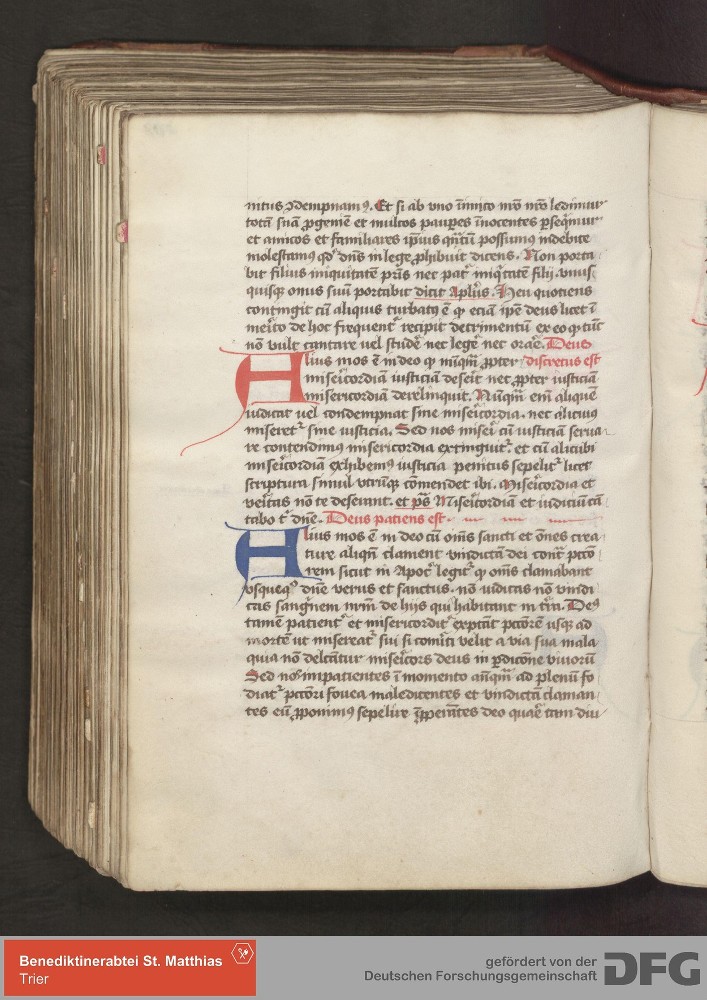 nitus ꝯdempnamꝰ. Et si ab vno inimico nr̄o nr̄o ledimur
totā suā ꝓgeniē et multos pauꝑes īnocentes ꝑseq̄mur
et amicos et familiares ip̄ius qn̄tū possumꝰ indebite
molestamꝰ qd̓ dn̄s in lege ꝓhibuit dicens. Non porta
bit filius iniquitatē pr̄is nec pat̓ iniq̓tatē filij. vnus
quisqꝫ onus suū portabit dicit Aplūs. Heu quotiens
contingit cū aliquis turbatꝰ ē ꝙ eciā ip̄e deus licet ī
merito de hoc frequent̓ recipit detrimentū ex eo ꝙ tūc
nō vult cantare vel studē nec legē nec orar̄e. Deus
Alius mos ē in deo ꝙ nūqm̄ ꝓpter discretus est
misericordiā iusticiā deserit nec ꝓpter iusticiā
misericordiā derelinquit. Nūqm̄ em̄ aliquē
iudicat uel condempnat sine misericordia. nec alicuiꝰ
miseret̓ sine iusticia. Sed nos miseri cū iusticiā serua
re contendimꝰ misericordia extinguit̓. et cū alicubi
misericordiā exhibemꝰ iusticia penitus sepelit̓ licet
scriptura simul vtrūqꝫ cōmendet ibi. Misericordia et
veritas nō te deserant. et pꝰ̄s Misericordiā et iudiciū cā
tabo t̓ dn̄e. Deus patiens est.
Alius mos ē in deo cū om̄s sancti et ōnes crea
ture aliqn̄ clament vindictā dei cont̓ pctō
rem sicut in Apoc̓ legit̓ ꝙ om̄s clamabant
vsquequo dn̄e verus et sanctus. nō iudicas nō vindi
cas sangꝰnem nr̄m de hijs qui habitant in t̓ra. Deꝰ
tamē patient̓ et misericordit̓ expctāt pctōrē usqꝫ ad
mortē ut misereat̓ sui si comīti velit a via sua mala
quia nō delectātur misericors deus in ꝑdicōne viuorū
Sed nos impatientes ī momento an̄qm̄ ad plenū fo
diat̓ pctōri fouea maledicentes et vindictā claman
tes eū ꝓponimꝰ sepelire īꝓꝑantes deo quar̄e tam diu
Benediktinerabtei St. Matthias
Trier
gefördert von der
Deutschen Forschungsgemeinschaft
DFG